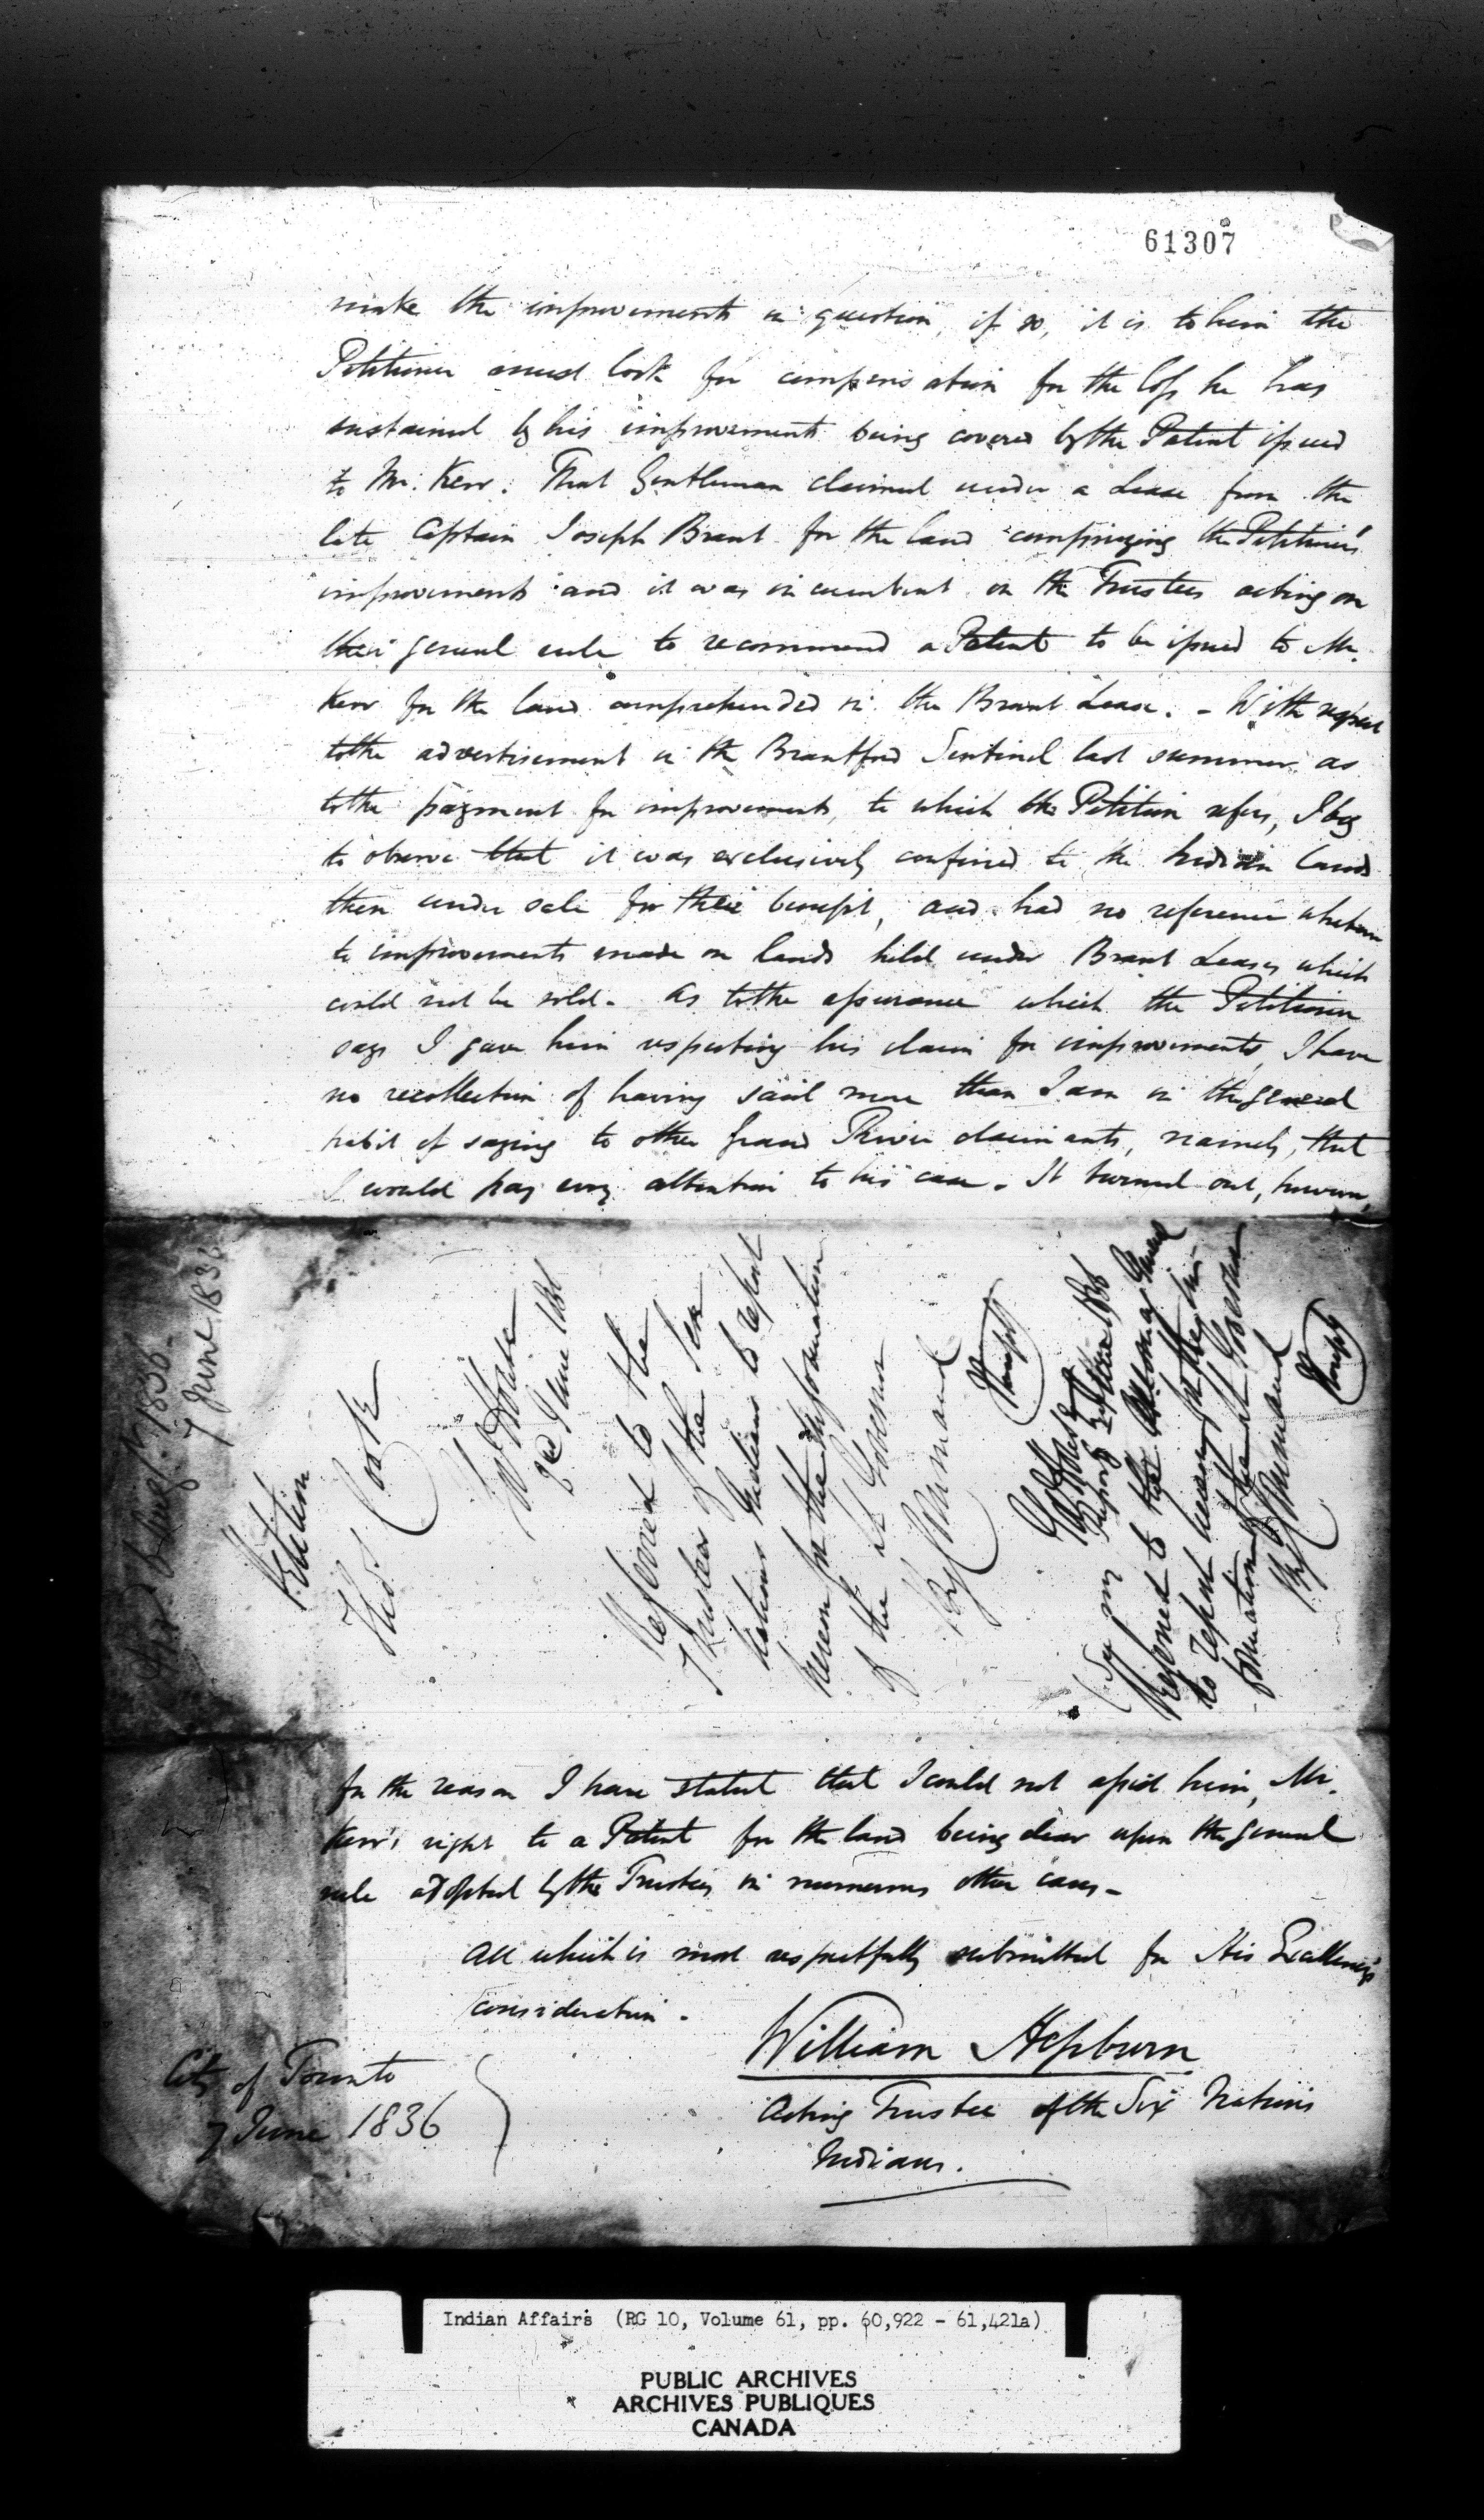 61307
make the improvements in question, if so, it is to him the
Petitioner must look for compensation for the loss he has
sustained by his improvements being covered by the Patent issued
to Mr. Kerr. That Gentleman claimed under a Lease from the
late Captain Joseph Brant for the land comprizing the Petitioner's
improvements and it was incumbent on the Trustees acting on
their general rule to recommend a Patent to be issued to Mr.
Kerr for the land comprehended in the Brant Lease. - With respect
to the advertisement in the Brantford Sentinel last summer as
to the payment for improvements, to which the Petition refers, I beg
to observe that it was exclusively confined to the Indian lands
then under sale for their benefit, and had no reference whatever
to improvements made on lands held under Brant Leases which
could not be sold. As to the assurance which the Petitioner
says I gave him respecting his claim for improvements, I have
no recollection of having said more than I am in the general
habit of saying to other Grand River claimants, namely, that
I would pay every attention to his case. It turned out, however,
7 June 1836
Petition
Thos Cook
Govt House
2d June 1836
Referred to the
Trustees of the Six
Nations Indians to report
hereon for the information
of the Lt Governor
By Command
Govt House
Referred to the Attorney General
to report hereon for the in-
formation of the Lt Governor
By Command
for the reason I have stated that I could not assist him, Mr.
Kerr's right to a Patent for the land being clear upon the general
rule adopted by the Trustees in numerous other cases -
All which is most respectfully submitted for His Excellency's
consideration.
William Hepburn
Acting Trustee of the Six Nations
Indians.
City of Toronto
7 June 1836
Indian Affairs (RG 10, Volume 61, pp. 60,922 - 61,421a)
PUBLIC ARCHIVES
ARCHIVES PUBLIQUES
CANADA